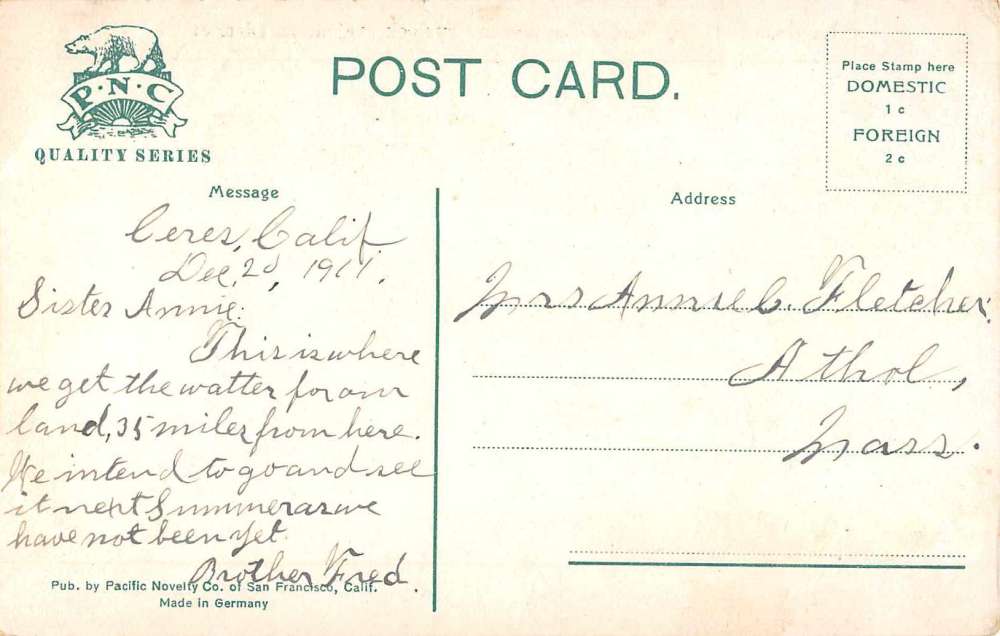 P·N·C
QUALITY SERIES
POST CARD.
Place Stamp here
DOMESTIC
1 c
FOREIGN
2 c
Message
Ceres, Calif.
Dec, 2d, 1911.
Sister Annie:
This is where
we get the watter for our
land, 35 miles from here.
We intend to go and see
it next Summer as we
have not been yet.
Brother Fred.
Pub. by Pacific Novelty Co. of San Francisco, Calif.
Made in Germany
Address
Mrs Annie C. Fletcher.
Athol,
Mass.